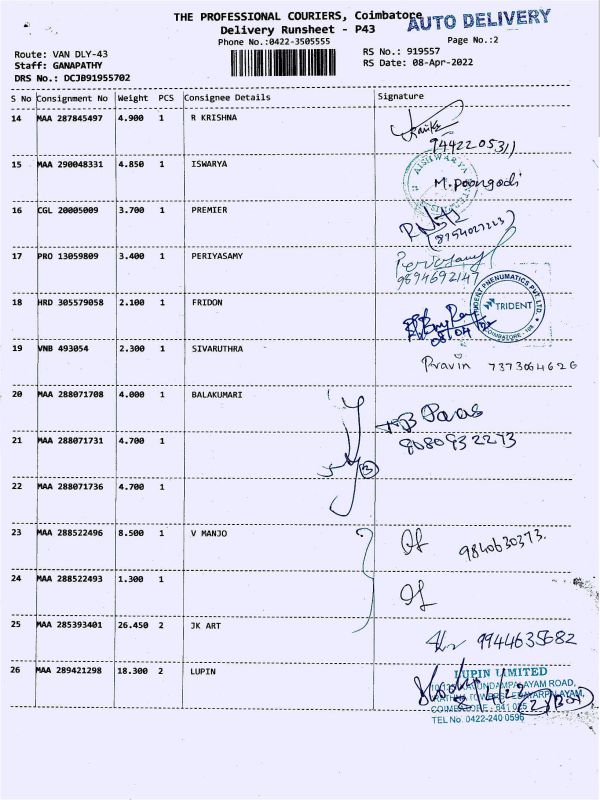 THE PROFESSIONAL COURIERS, Coimbatore
AUTO DELIVERY
Delivery Runsheet - P43
Phone No.:0422-3505555
Page No.:2
Route: VAN DLY-43
RS No.: 919557
Staff: GANAPATHY
RS Date: 08-Apr-2022
DRS No.: DCJB91955702
S No Consignment No Weight PCS Consignee Details Signature
14 MAA 287845497 4.900 1 R KRISHNA
9442205311
15 MAA 290048331 4.850 1 ISWARYA
AISHWARYA
M.Poongodi
16 CGL 20005009 3.700 1 PREMIER
17 PRO 13059809 3.400 1 PERIYASAMY
Periyasamy
9594692147
18 HRD 305579058 2.100 1 FRIDON
TRIDENT PNEUMATICS PVT. LTD.
TRIDENT
COIMBATORE
08/04/22
19 VNB 493054 2.300 1 SIVARUTHRA
Pravin 7373064626
20 MAA 288071708 4.000 1 BALAKUMARI
21 MAA 288071731 4.700 1
9080932273
3
22 MAA 288071736 4.700 1
23 MAA 288522496 8.500 1 V MANJO
9840630373.
24 MAA 288522493 1.300 1
25 MAA 285393401 26.450 2 JK ART
9944635682
26 MAA 289421298 18.300 2 LUPIN
LUPIN LIMITED
ROAD,
COIMBATORE - 641 025
TEL No. 0422-240 0596